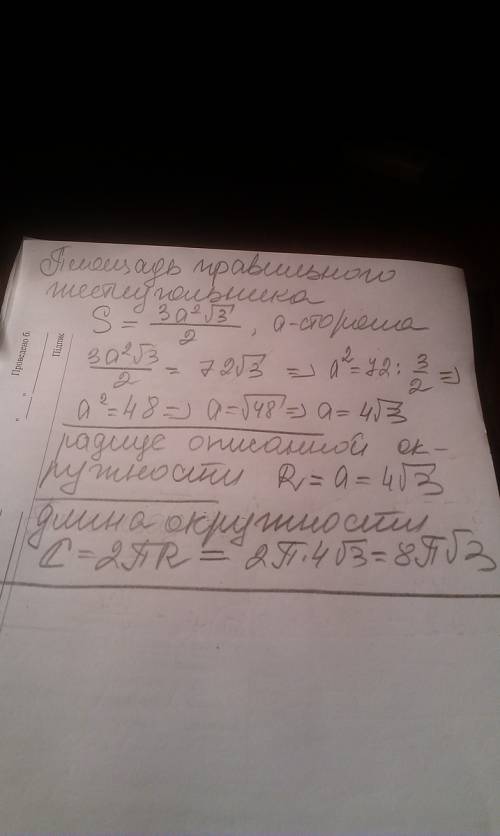 Площадь правильного
шестиугольника
S = 3a²√3/2, a-сторона
3a²√3/2 = 72√3 => a²=72: 3/2 =>
a²=48 => a=√48 => a=4√3
радиус описанной ок-
ружности R=a=4√3
длина окружности
C=2πR = 2π·4√3=8π√3
Приведено б
" "
Підпис